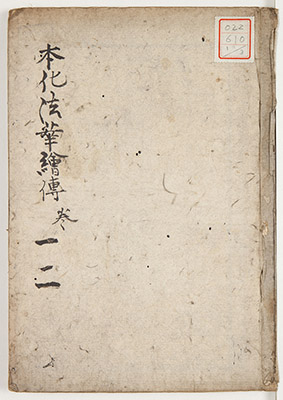 本化法華繪傳 巻一二
022
610